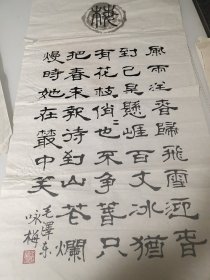 梅
風雨送春歸飛雪迎春
到已是懸崖百丈冰猶
有花枝俏〻也不爭春只
把春來報待到山花爛
漫時她在叢中笑
毛澤東
咏梅